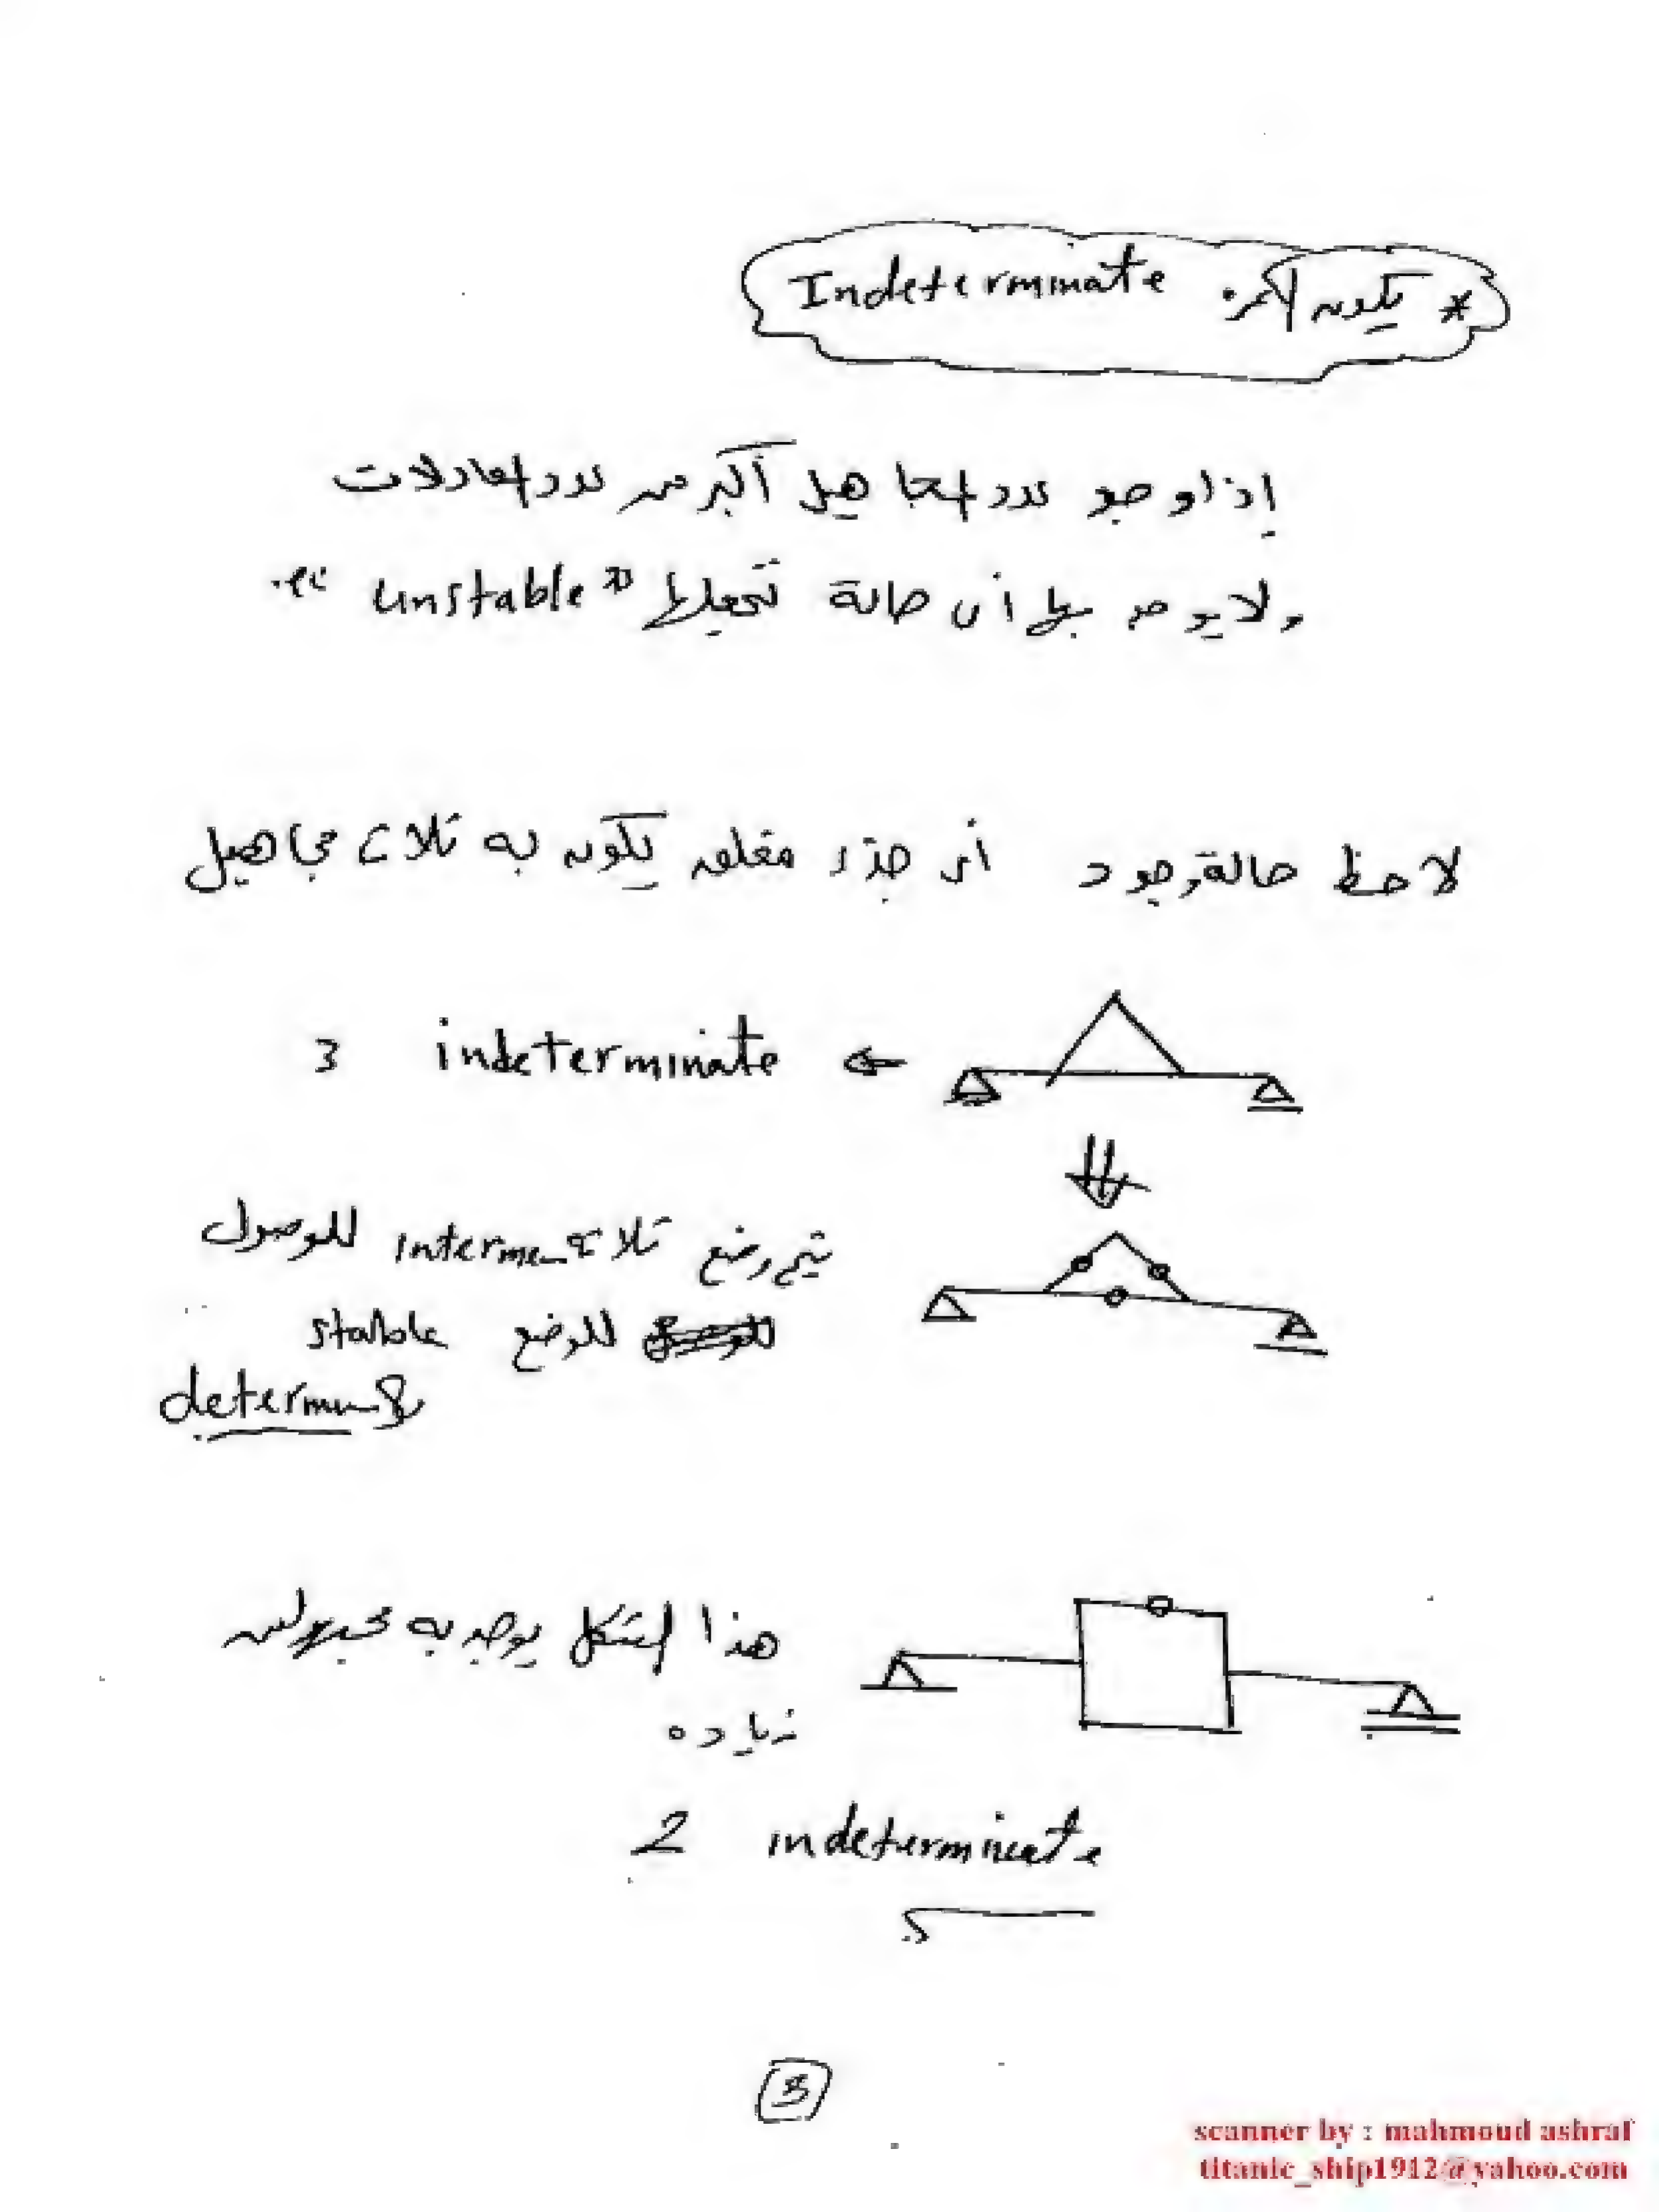 * يكون الـ Indeterminate
إذا وجد عدد المجاهيل أكبر من عدد المعادلات
ولا يوجد بها أى حالة تجعلها "unstable"
لاحظ حالة وجود أى جزء مغلق يكون به ثلاث مجاهيل
3 indeterminate ⇐
يتم وضع ثلاثة للوصول
للوضع stable
& determ
هذا الشكل يوجد به مجهولين
زياده
2 indeterminate
3
scanner by : mahmoud ashraf
titanic_ship1912@yahoo.com